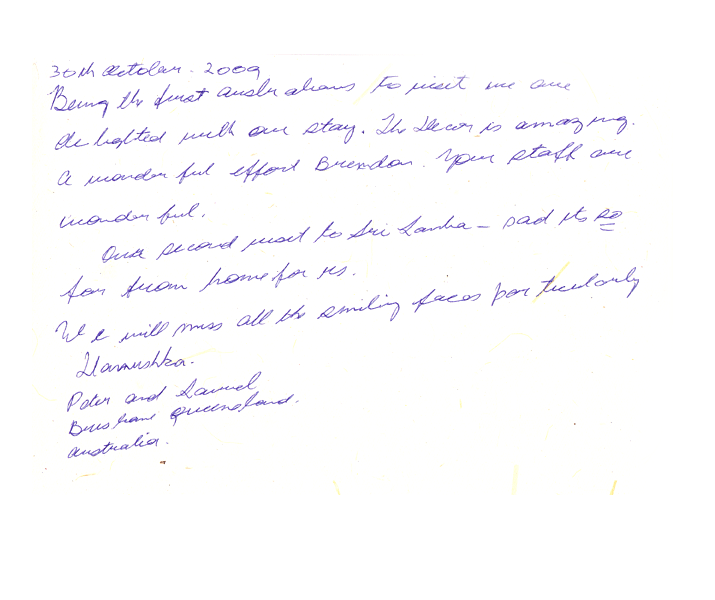 30th October. 2009
Being the first Australians to visit we are
delighted with our stay. The Decor is amazing.
A wonderful effort Brendon. Your staff are
wonderful.
Our second visit to Sri Lanka – sad its so
far from home for us.
We will miss all the smiling faces particularly
Peter and Laurel
Brisbane Queensland.
Australia.